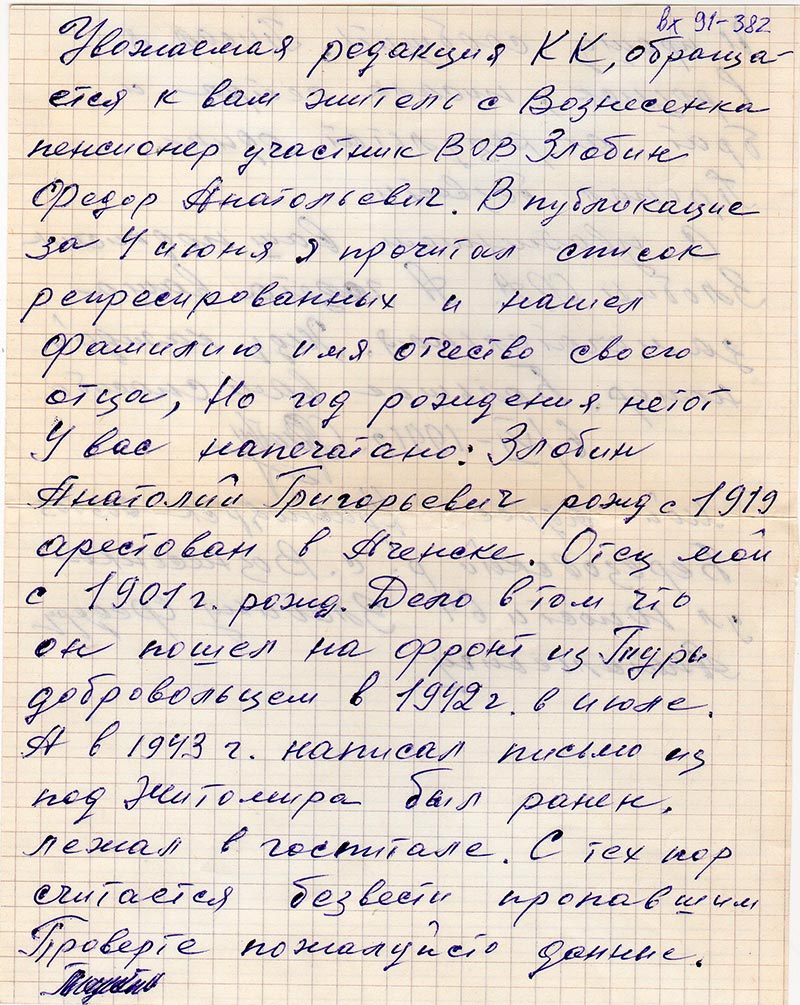 Вх 91-382
Уважаемая редакция КК, обраща-
ется к вам житель с Вознесенка
пенсионер участник ВОВ Злобин
Федор Анатольевич. В публикацие
за 4 июня я прочитал список
репресированных и нашел
фамилию имя отчество своего
отца, Но год рождения нетот
У вас напечатано: Злобин
Анатолий Григорьевич рожд с 1919
арестован в Аченске. Отец мой
с 1901 г. рожд. Дело в том что
он пошел на фронт из Туры
добровольцем в 1942 г. в июле.
А в 1943 г. написал письмо из
под Житомира был ранен,
лежал в госпитале. С тех пор
считается безвести пропавшим
Проверте пожалуйсто данные.